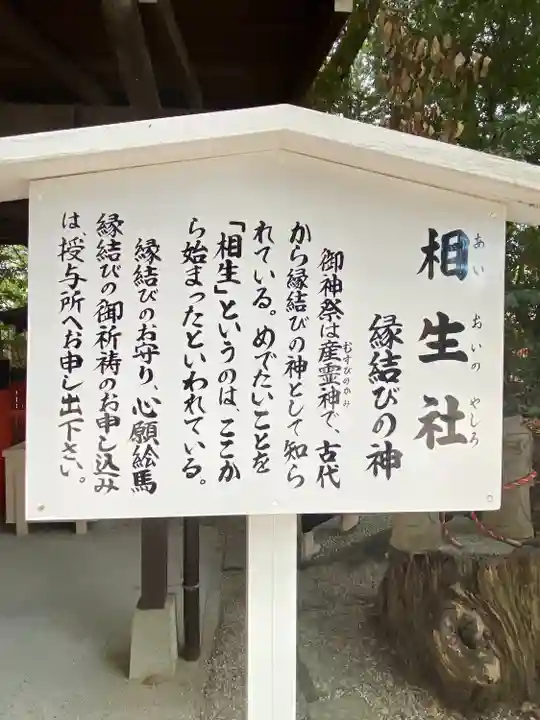 相生社
あい おいの やしろ
縁結びの神
御神祭は産霊神で、古代
むすびのかみ
から縁結びの神として知ら
れている。めでたいことを
「相生」というのは、ここか
ら始まったといわれている。
縁結びのお守り、心願絵馬
縁結びの御祈祷のお申し込み
は、授与所へお申し出下さい。